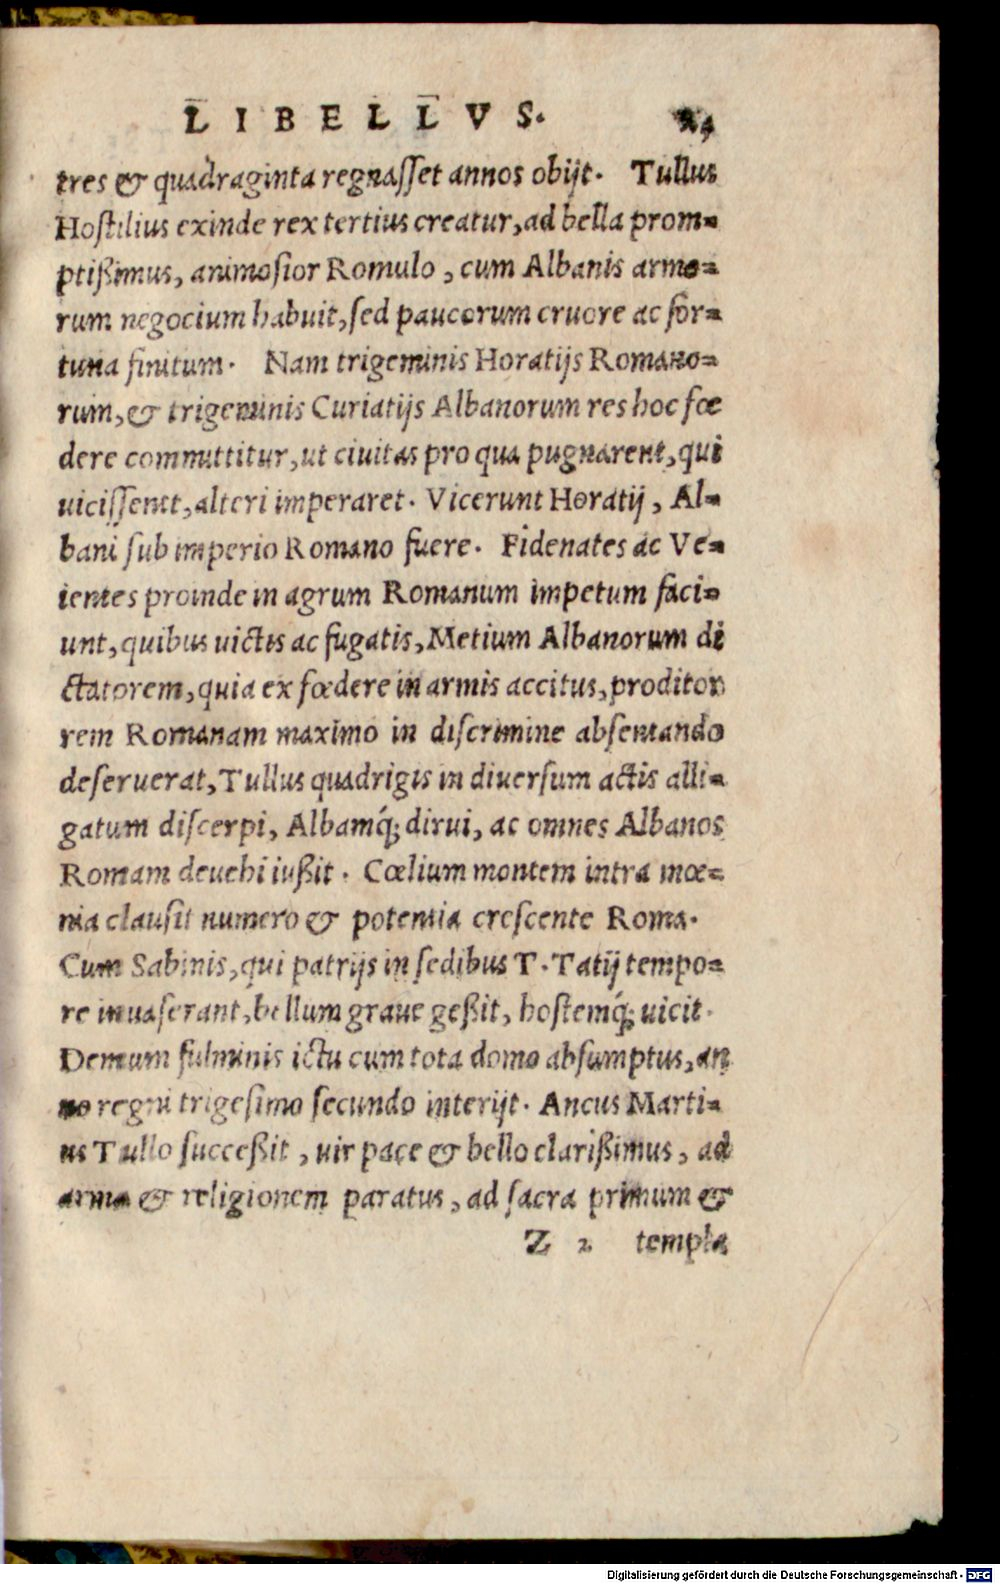 LIBELLVS.
tres & quadraginta regnasset annos obijt. Tullus
Hostilius exinde rex tertius creatur, ad bella prom=
ptißimus, animosior Romulo, cum Albanis armo=
rum negocium habuit, sed paucorum cruore ac for=
tuna finitum. Nam trigeminis Horatijs Romano=
rum, & trigeminis Curiatijs Albanorum res hoc fœ
dere committitur, ut ciuitas pro qua pugnarent, qui
uicissent, alteri imperaret. Vicerunt Horatij, Al=
bani sub imperio Romano fuere. Fidenates ac Ve=
ientes proinde in agrum Romanum impetum faci=
unt, quibus uictis ac fugatis, Metium Albanorum di
ctatorem, quia ex fœdere in armis accitus, proditor
rem Romanam maximo in discrimine absentando
deseruerat, Tullus quadrigis in diuersum actis alli=
gatum discerpi, Albamq́; dirui, ac omnes Albanos
Romam deuehi iußit. Cœlium montem intra mœ=
nia clausit numero & potentia crescente Roma.
Cum Sabinis, qui patrijs in sedibus T. Tatij tempo=
re inuaserant, bellum graue geßit, hostemq́; uicit.
Demum fulminis ictu cum tota domo absumptus, an
no regni trigesimo secundo interijt. Ancus Marti=
us Tullo succeßit, uir pace & bello clarißimus, ad
arma & religionem paratus, ad sacra primum &
Z 2 templa
Digitalisierung gefördert durch die Deutsche Forschungsgemeinschaft - DFG